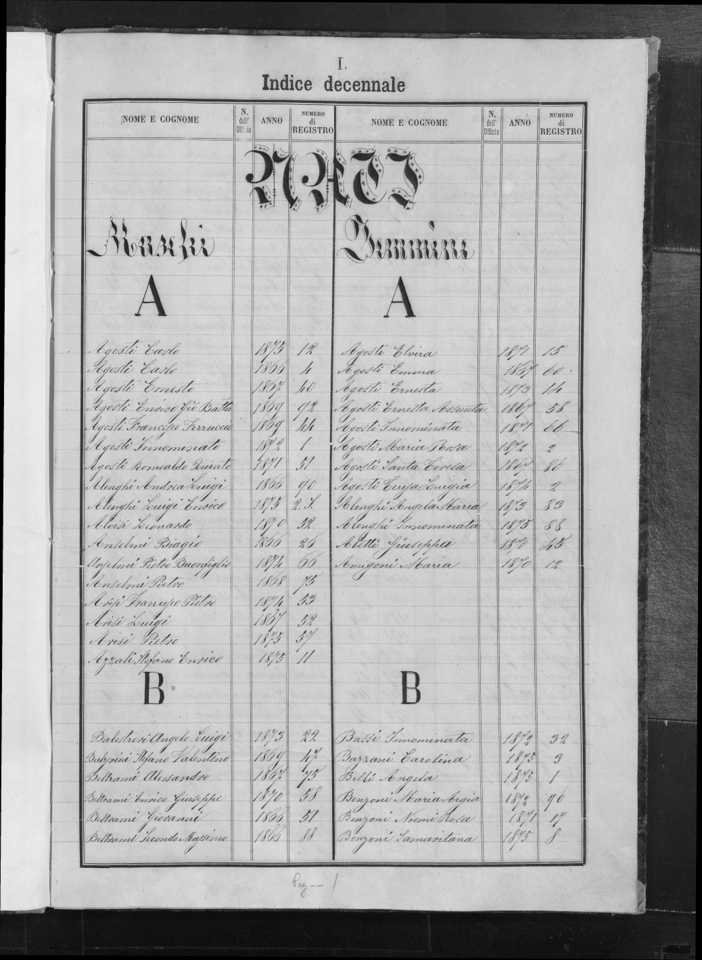 I.
Indice decennale
NOME E COGNOME N. dell' Ufficio ANNO NUMERO di REGISTRO NOME E COGNOME N. dell' Ufficio ANNO NUMERO di REGISTRO
NATI
Maschi Femmine
A A
Agosti Carlo 1873 12 Agosti Elvira 1871 15
Agosti Carlo 1866 4 Agosti Emma 1867 60
Agosti Ernesto 1867 40 Agosti Ernesta 1873 14
Agosti Enrico Gio Batta 1869 92 Agosti Ernesta Assunta 1867 58
Agosti Francesco Ferruccio 1869 44 Agosti Innominata 1871 66
Agosti Innominato 1872 1 Agosti Maria Rosa 1872 2
Agosti Romualdo Quinto 1871 51 Agosti Santa Teresa 1867 86
Alenghi Andrea Luigi 1866 90 Agosti Teresa Luigia 1874 2
Alenghi Luigi Enrico 1875 Alenghi Angela Maria 1873 83
Aloisi Leonardo 1870 32 Alenghi Innominata 1875 88
Anselmi Biagio 1866 26 Aletti Giuseppa 1871 45
Anselmi Pietro Buonfiglio 1872 66 Amigoni Maria 1870 12
Anselmi Pietro 1868 75
Arisi Francesco Pietro 1874 53
Arisi Luigi 1867 52
Arisi Pietro 1875 57
Azzali Stefano Enrico 1875 11
B B
Balestreri Angelo Luigi 1873 22 Bassi Innominata 1872 32
Stefano Valentino 1869 47 Bazzani Carolina 1875 3
Beltrami Alessandro 1867 75 Belli Angela 1875 1
Beltrami Enrico Giuseppe 1870 58 Benzoni Maria Argia 1872 90
Beltrami Giovanni 1866 51 Benzoni Noemi Rosa 1871 17
Beltrami Secondo Massimo 1866 88 Benzoni Samaritana 1875 8
Pag -- 1